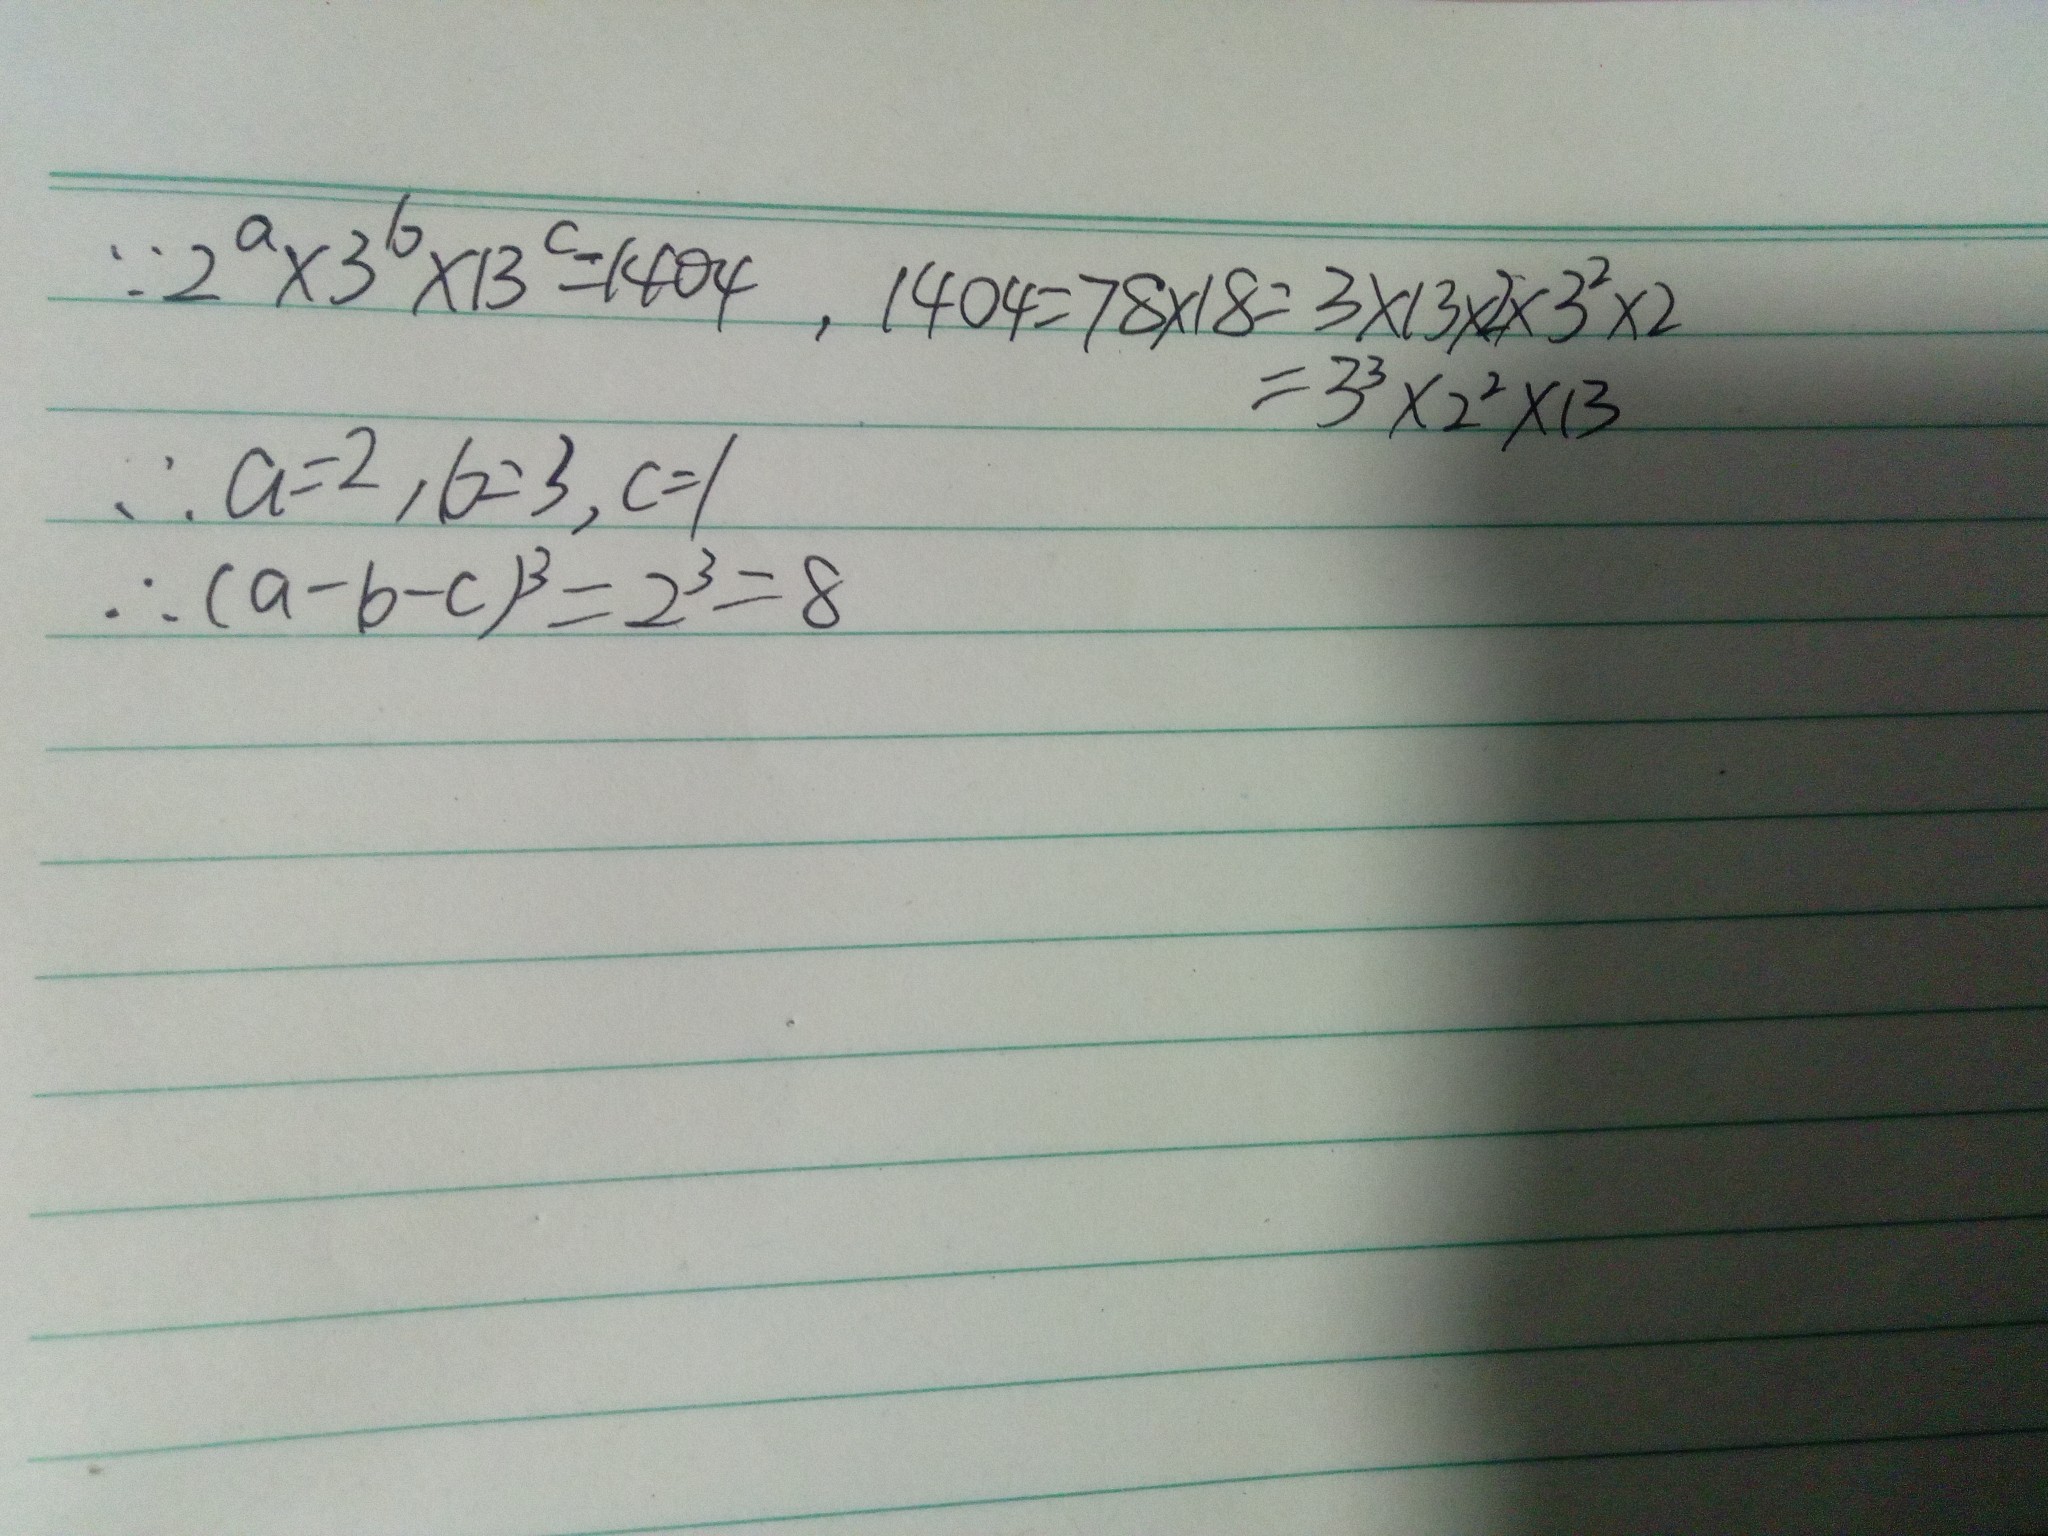 ∵2^a×3^b×13^c=1404，1404=78×18=3×13×2×3²×2
=3³×2²×13
∴a=2,b=3,c=1
∴(a-b-c)³=2³=8